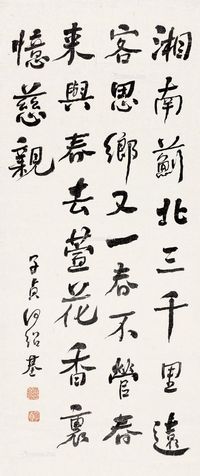 湘南薊北三千里遠
客思鄉又一春不管春
来與春去萱花香裏
憶慈親
子貞何紹基